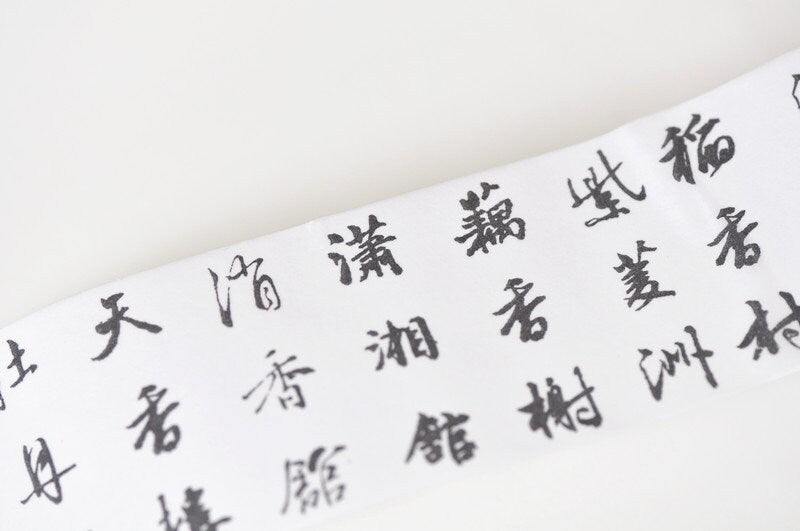 稻香村
紫菱洲
藕香榭
瀟湘館
消香館
天香樓
牡丹